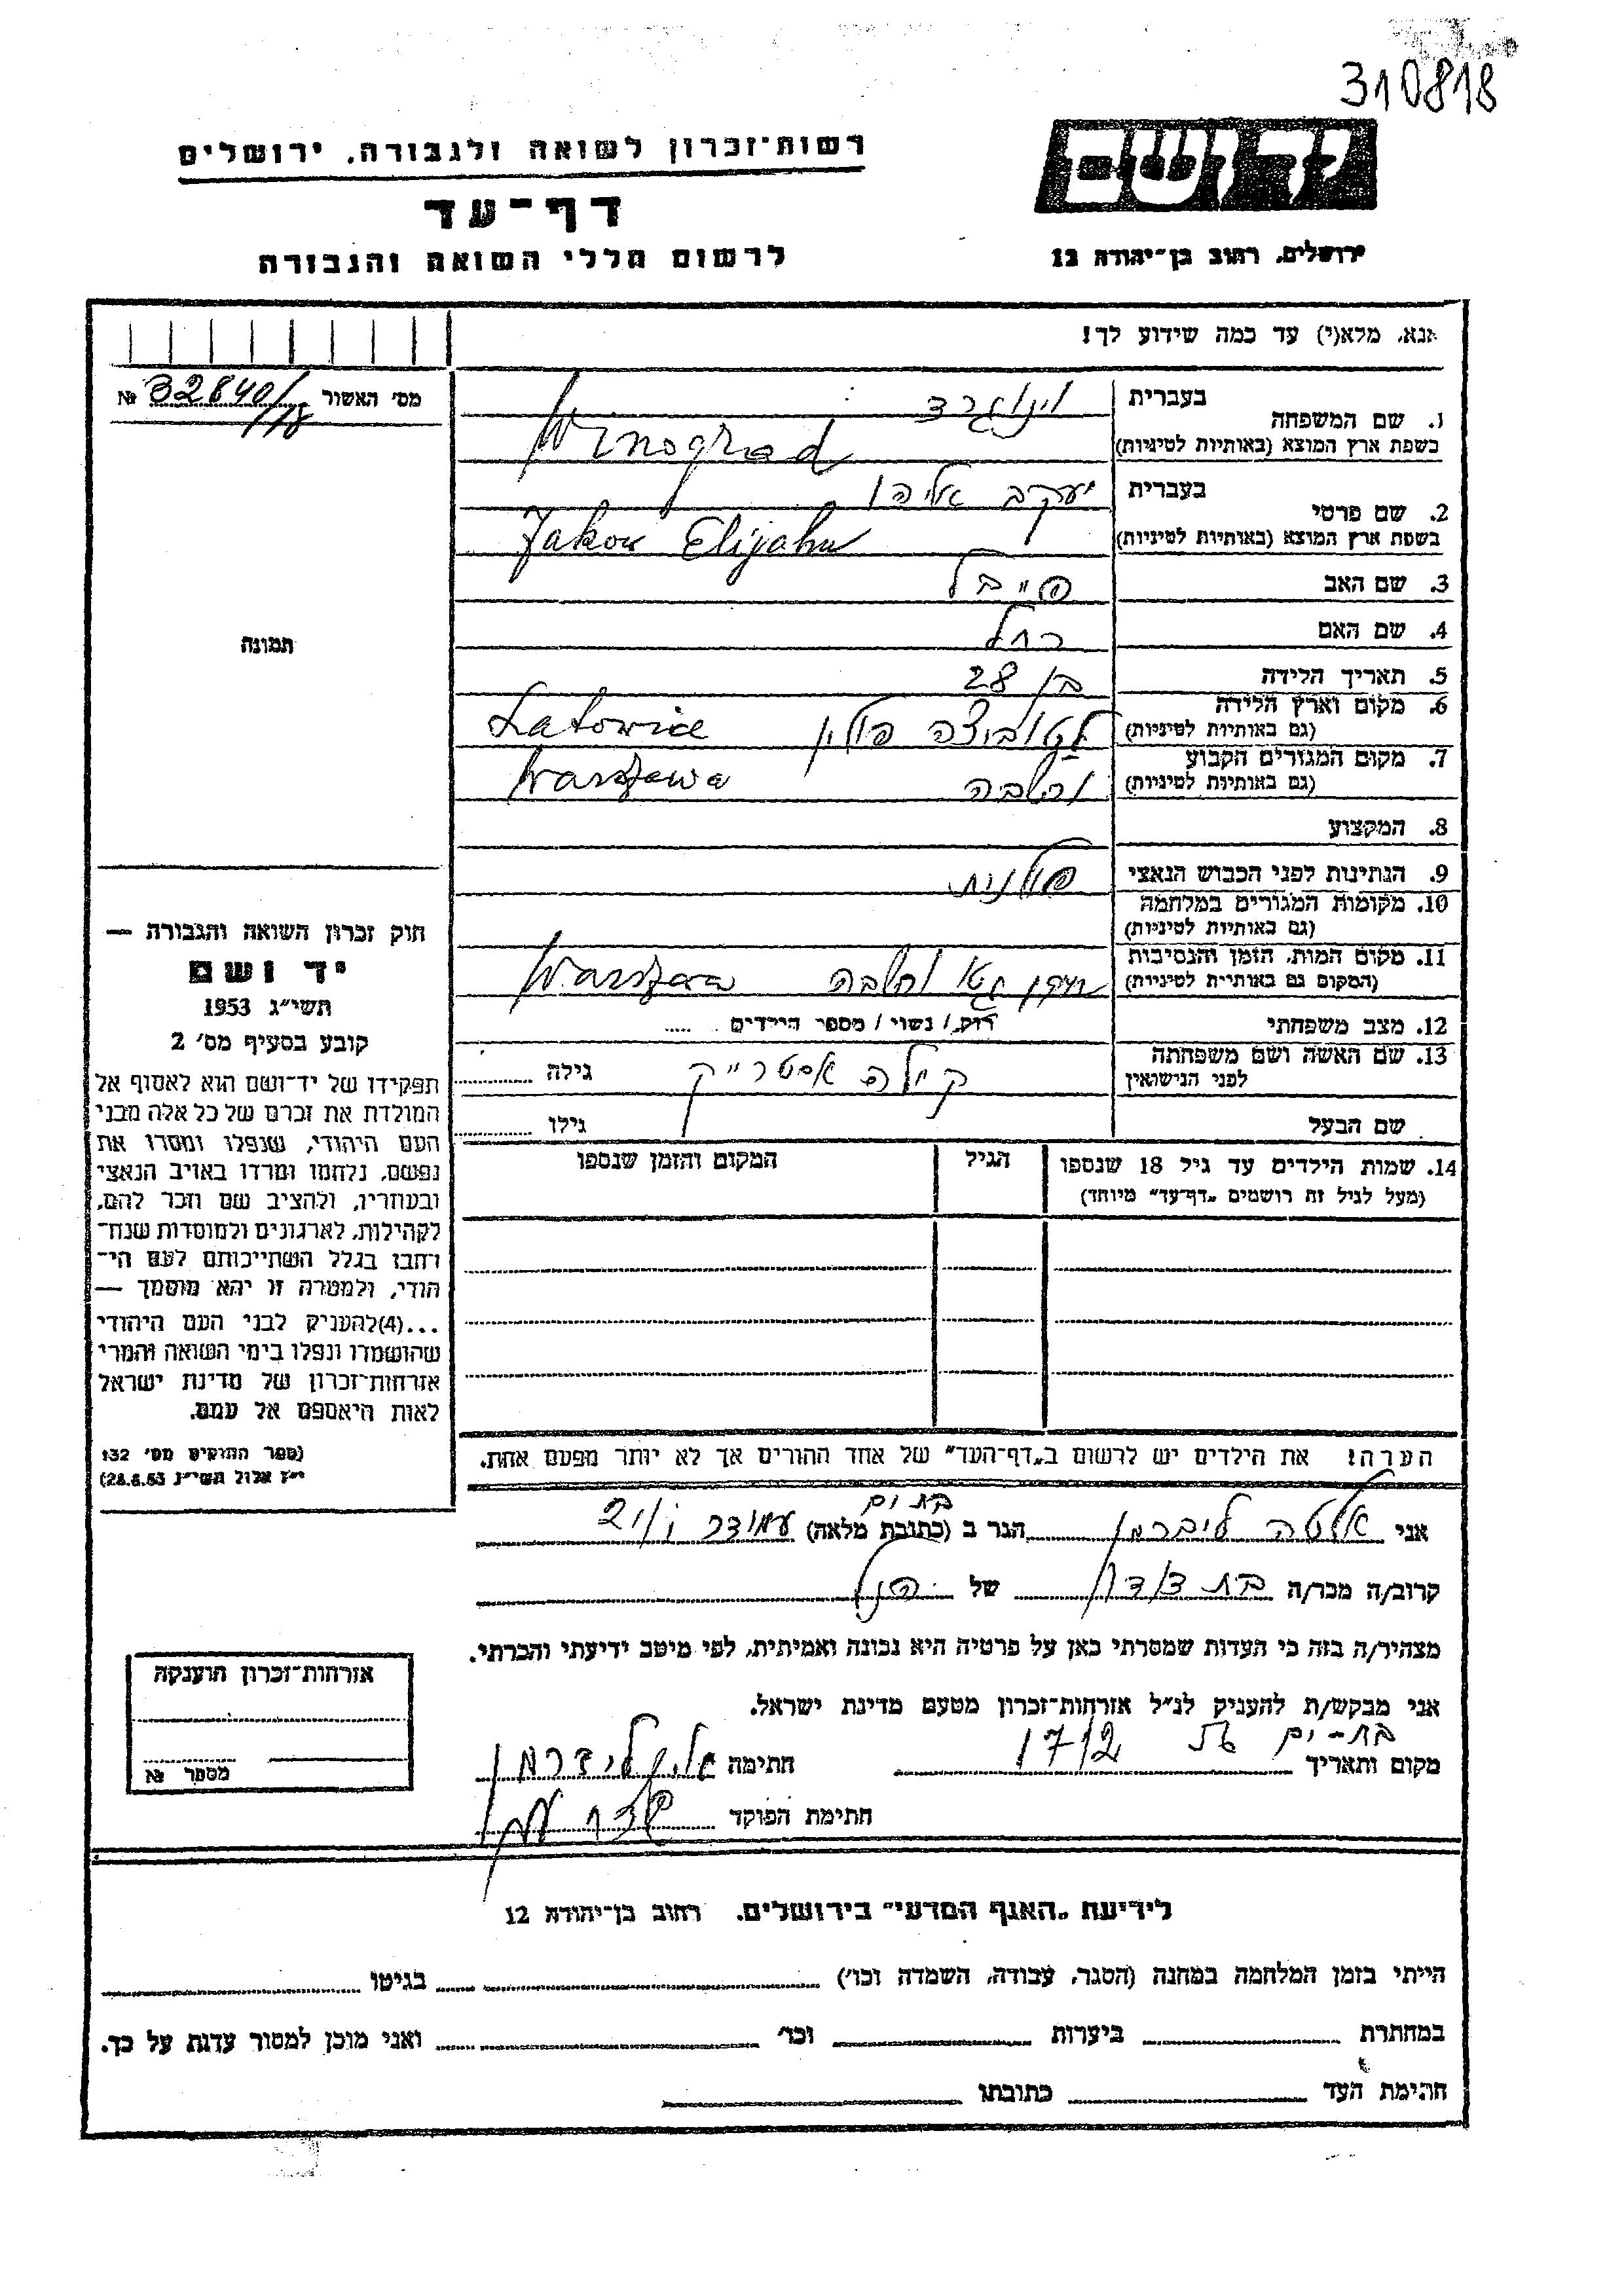 310818
יד ושם
רשות־זכרון לשואה ולגבורה, ירושלים
דף־עד
ירושלים, רחוב בן־יהודה 12
לרשום חללי השואה והגבורה
אנא, מלא(י) עד כמה שידוע לך!
מס׳ האשור № 32840/118
1. שם המשפחה בעברית וינוגרד
בשפת ארץ המוצא (באותיות לטיניות) Winograd
2. שם פרטי בעברית יעקב אליהו
בשפת ארץ המוצא (באותיות לטיניות) Jakow Elijahu
3. שם האב פייבל
4. שם האם רחל
תמונה
5. תאריך הלידה בן 28
6. מקום וארץ הלידה
(גם באותיות לטיניות) לטוביצה פולין Latowice
7. מקום המגורים הקבוע
(גם באותיות לטיניות) ורשבה Warszawa
8. המקצוע
9. הנתינות לפני הכבוש הנאצי פולנית
10. מקומות המגורים במלחמה
(גם באותיות לטיניות)
11. מקום המות, הזמן והנסיבות
(המקום גם באותיות לטיניות) גטו ורשבה Warszawa
12. מצב משפחתי רוק / נשוי / מספר הילדים
13. שם האשה ושם משפחתה
לפני הנישואין קילה גילה
שם הבעל גילו
14. שמות הילדים עד גיל 18 שנספו הגיל המקום והזמן שנספו
(מעל לגיל זה רושמים „דף־עד״ מיוחד)
חוק זכרון השואה והגבורה —
יד ושם
תשי״ג 1953
קובע בסעיף מס׳ 2
תפקידו של יד־ושם הוא לאסוף אל
המולדת את זכרם של כל אלה מבני
העם היהודי, שנפלו ומסרו את
נפשם, נלחמו ומרדו באויב הנאצי
ובעוזריו, ולהציב שם וזכר להם,
לקהילות, לארגונים ולמוסדות שנח־
רבו בגלל השתייכותם לעם הי־
הודי, ולמטרה זו יהא מוסמך —
...(4)להעניק לבני העם היהודי
שהושמדו ונפלו בימי השואה והמרי
אזרחות־זכרון של מדינת ישראל
לאות היאספם אל עמם.
(ספר החוקים מס׳ 132
י״ז אלול תשי״ג 28.8.53)
הערה! את הילדים יש לרשום ב„דף־העד״ של אחד ההורים אך לא יותר מפעם אחת.
בת ים
אני אלטה ליברמן הגר ב (כתובת מלאה)
קרוב/ה מכר/ה בת דודה של הנ״ל
מצהיר/ה בזה כי העדות שמסרתי כאן על פרטיה היא נכונה ואמיתית, לפי מיטב ידיעתי והכרתי.
אני מבקש/ת להעניק לנ״ל אזרחות־זכרון מטעם מדינת ישראל.
בת-ים
מקום ותאריך 17/2 חתימה ליברמן
חתימת הפוקד
אזרחות־זכרון הוענקה
מספר №
לידיעת „האגף המדעי״ בירושלים, רחוב בן־יהודה 12
הייתי בזמן המלחמה במחנה (הסגר, עבודה, השמדה וכו׳) בגיטו
במחתרת ביערות וכו׳ ואני מוכן למסור עדות על כך.
חתימת העד כתובתו